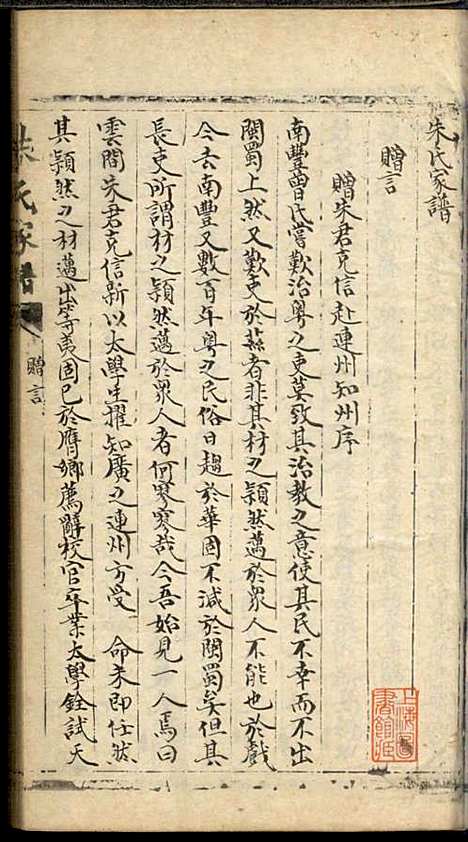 朱氏家譜
贈言
贈朱君克信赴連州知州序
南豐曾氏嘗歎治粵之吏莫致其治教之意使其民不幸而不出
閩蜀上然又歎吏於茲者非其材之頴然邁於眾人不能也於戲
今去南豐又數百年粵之民俗日趨於華固不減於閩蜀矣但其
長吏所謂材之頴然邁於眾人者何寥寥哉今吾始見一人焉曰
雲間朱君克信新以太學生擢知廣之連州方受 命未即任然
其頴然之材邁出等夷固已於膺鄉薦辭校官卒業太學銓試天
朱氏家譜
贈言
上海圖書館藏